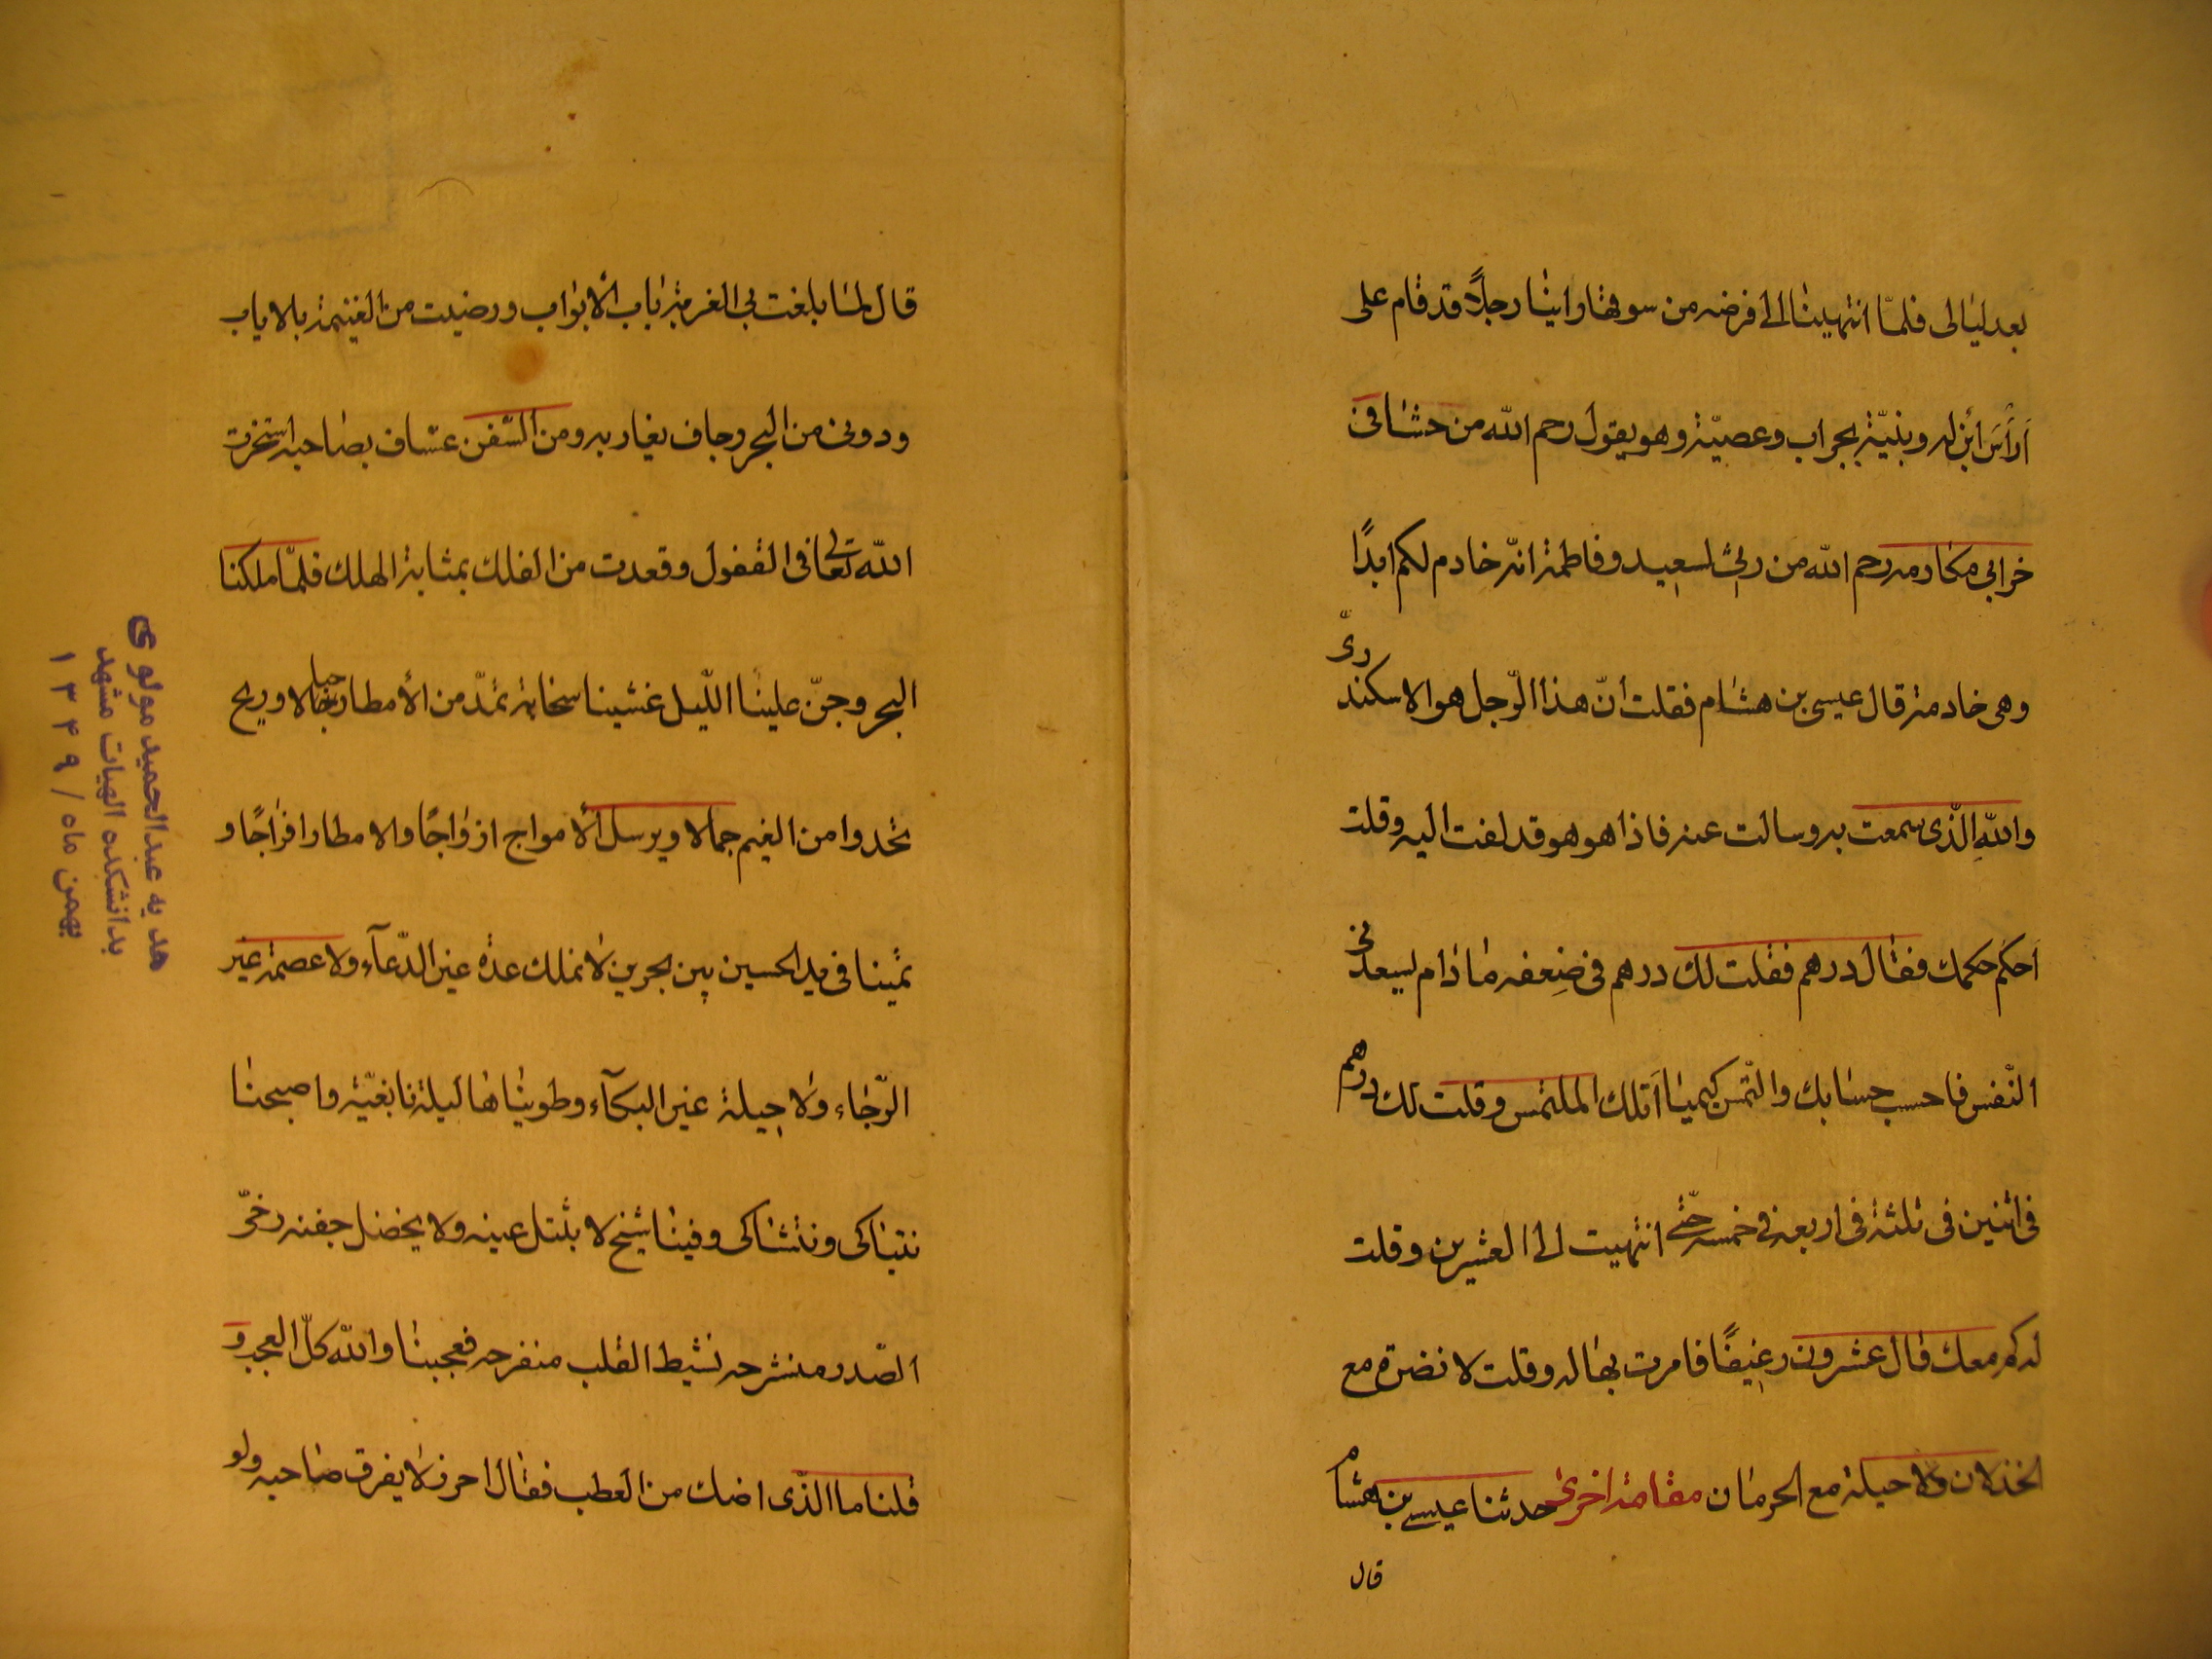 بعد ليالى فلمّا انتهينا الى فرضه من سوقها واينا رجلاً قد قام على
رأس ابن له وبنيّة بجراب وعصيّة وهو يقول رحم الله من حشا فى
جرابى مكارمه رحم الله من رثى لسعيد وفاطمة انّه خادم لكم ابدًا
وهى خادمة قال عيسى بن هشام فقلت أنّ هذا الرّجل هو الاسكندرىّ
والله الّذى سمعت به وسالت عنه فاذا هو هو قد لفت اليه وقلت
احكم حكمك فقال درهم فقلت لك درهم فى ضعفه ما دام يسعدنى
النّفس فاحسب حسابك والتّمس كيميا أقلك الملتمس وقلت لك درهم
فى اثنين فى ثلثة فى اربعه فى خمسه حتّى انتهيت الى العشرين وقلت
له كم معك قال عشرون رغيفًا فامرت بها له وقلت لا نضرة مع
الخذلان ولا حيلة مع الحرمان مقامة اخرى حدثنا عيسى بن هشام
قال
قال لمّا بلغت بى الغربة باب الابواب ورضيت من الغنيمة بالاياب
ودونى من البحر وجاف بغاربه ومن السّفن عسّاف بصاحبه استخرت
الله تعالى فى القفول وقعدت من الفلك بمثابة الهلك فلمّا ملكنا
البحر وجنّ علينا اللّيل غشيتنا سحابة تمدّ من الأمطار حبالا وريح
تحدوا من الغيم جبالا ويرسل الأمواج ازواجًا والامطار افواجًا و
بمينا فى يد الحسين بين البحرين لا نملك عدة غير الدّعآء ولا عصمة غير
الرّجاء ولا حيلة غير البكآء وطويناها ليلة نابغيّة واصبحنا
نتباكى ونتشاكى وفينا شيخ لا يبتل عينه ولا يخضل جفنه رخىّ
الصّدر منشرحه نشيط القلب منفرحه فعجبنا والله كلّ العجب و
قلنا ما الّذى امنك من العطب فقال احرز لا يفرق صاحبه ولو
هديه عبدالحميد مولوى
بدانشكده الهيات مشهد
بهمن ماه / ۱۳۴۹